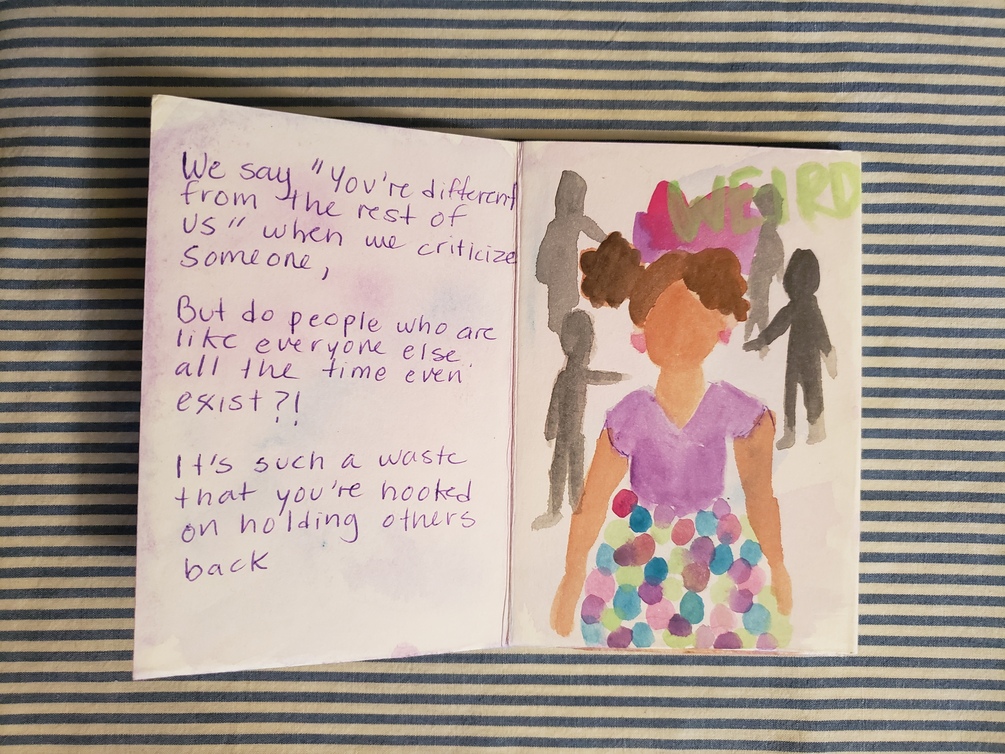 We say "You're different
from the rest of
us" when we criticize
someone,
But do people who are
like everyone else
all the time even
exist?!
It's such a waste
that you're hooked
on holding others
back
WEIRD